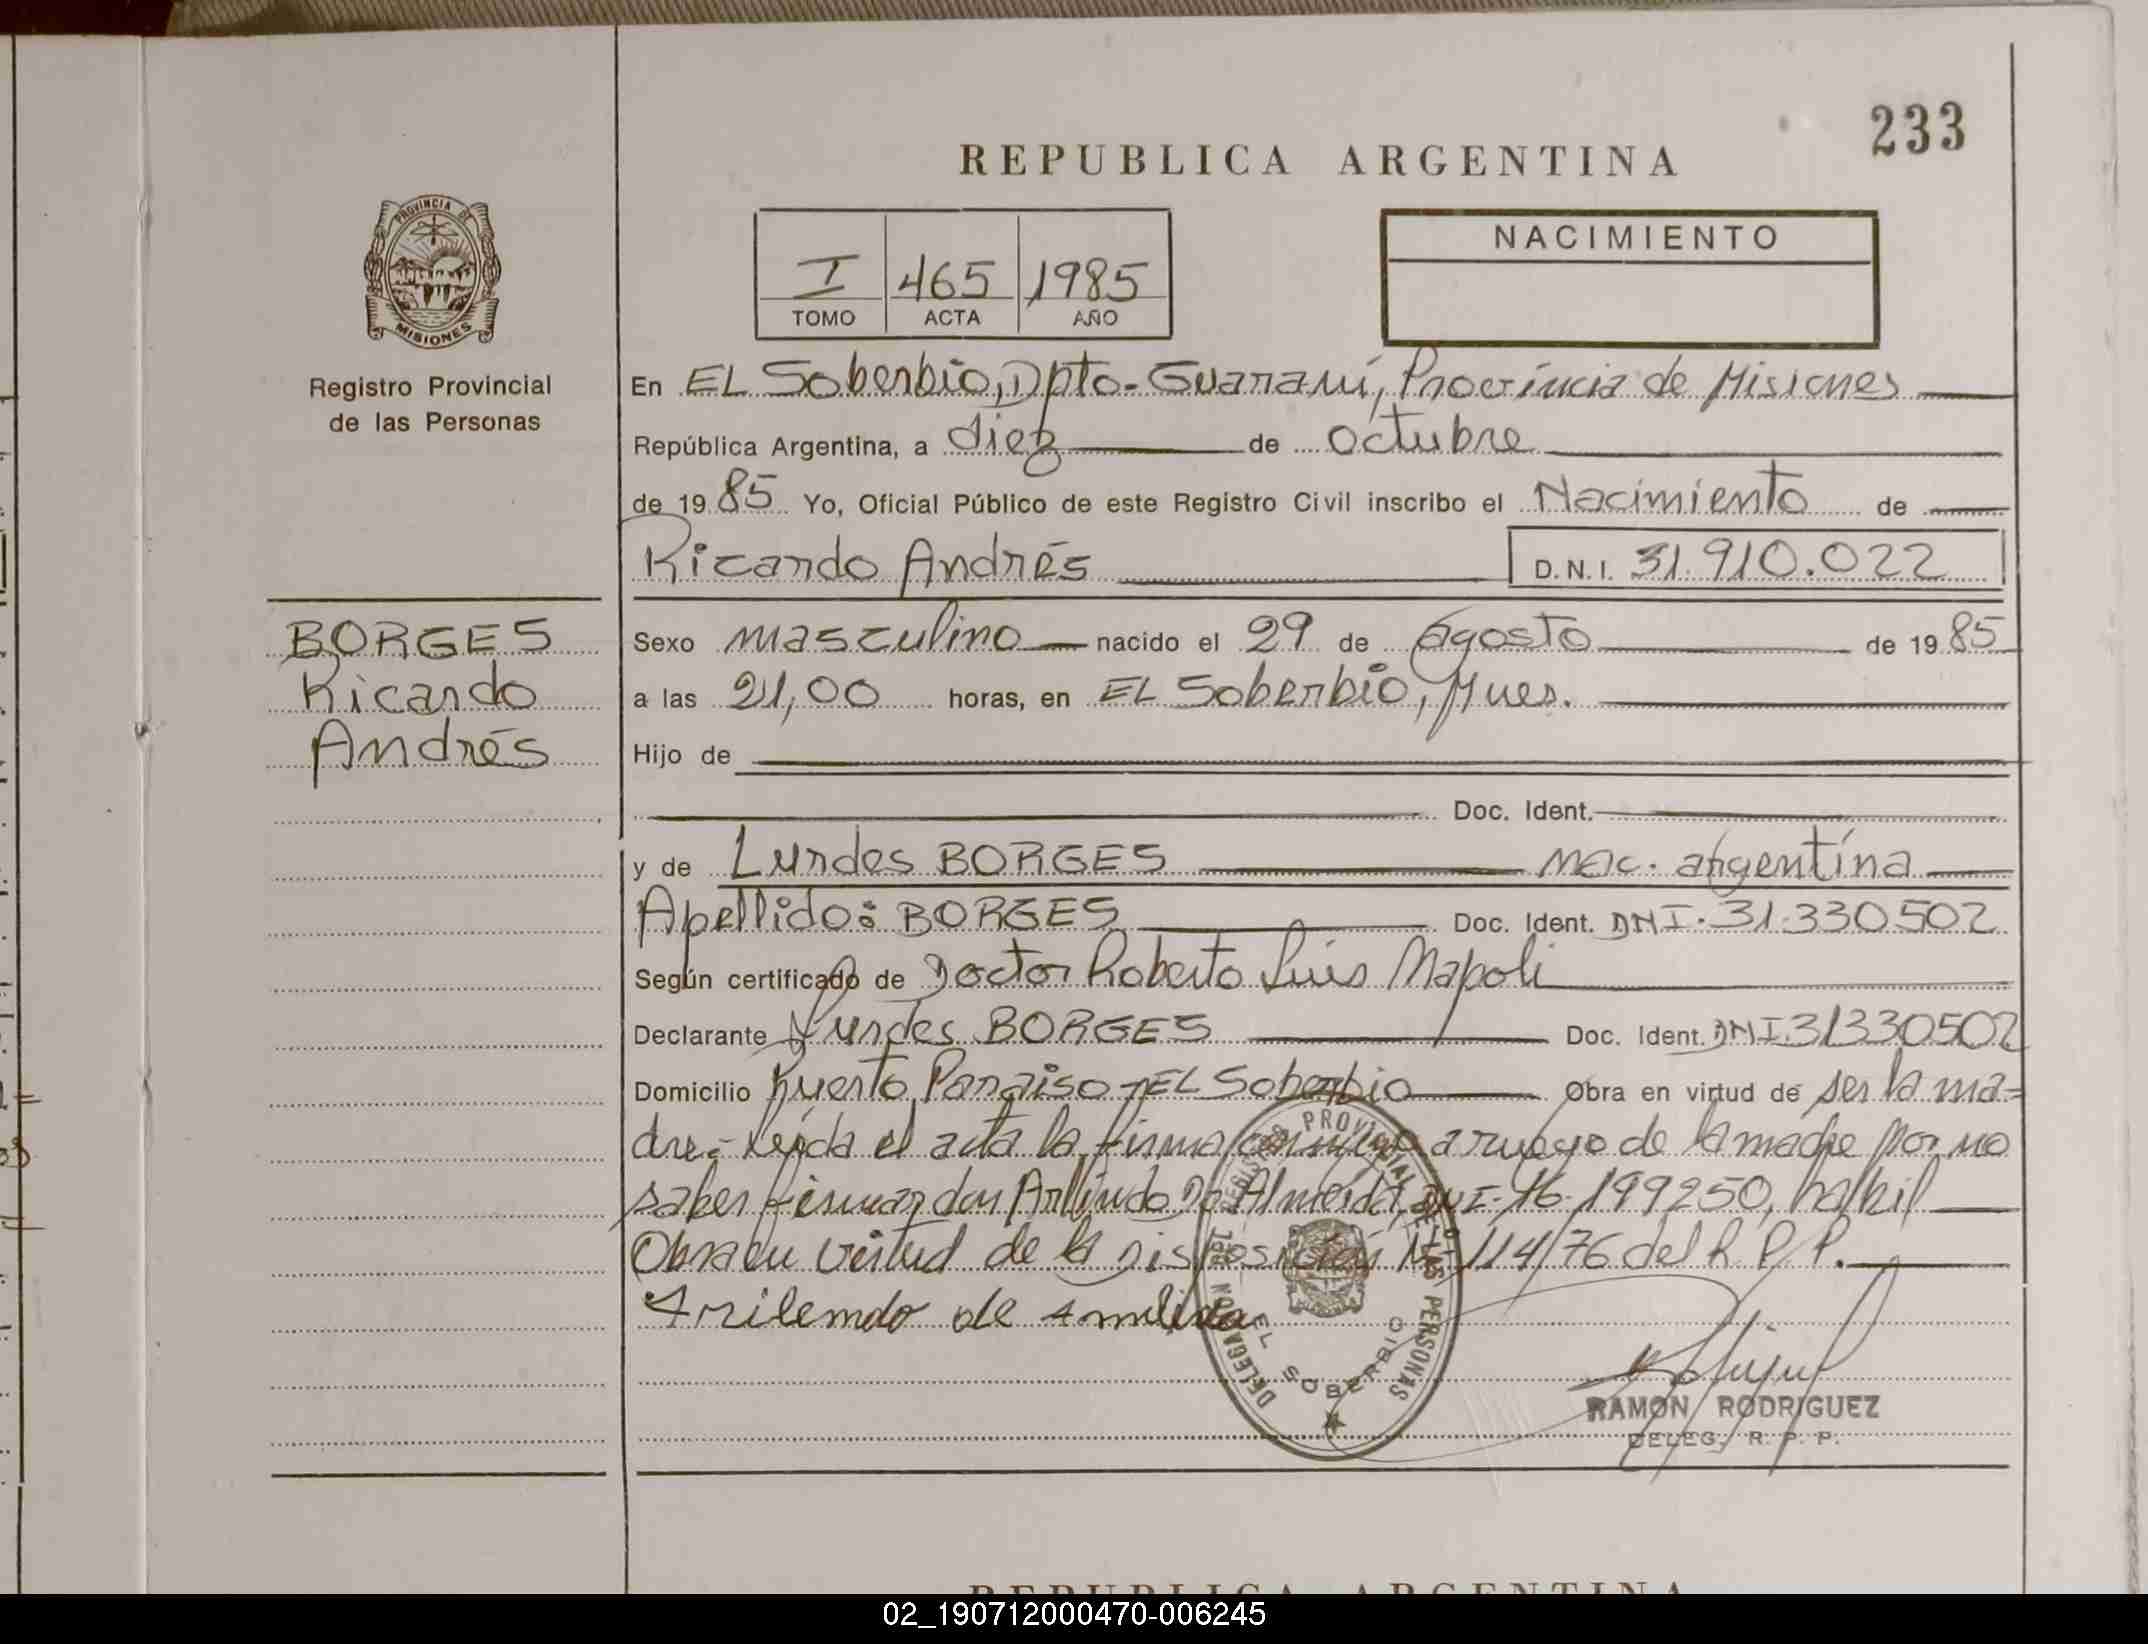 233
REPUBLICA ARGENTINA
PROVINCIA DE
MISIONES
Registro Provincial
de las Personas
I 465 1985
TOMO ACTA AÑO
NACIMIENTO
En EL Soberbio, Dpto. Guaraní, Provincia de Misiones
República Argentina, a diez de octubre
de 1985 Yo, Oficial Público de este Registro Civil inscribo el Nacimiento de
Ricardo Andrés D.N.I. 31.910.022
BORGES
Ricardo
Andrés
Sexo masculino nacido el 29 de agosto de 1985
a las 21,00 horas, en EL Soberbio, Mnes.
Hijo de
Doc. Ident.
y de Lurdes BORGES nac. argentina
Apellido: BORGES Doc. Ident. DNI. 31.330.502
Según certificado de Doctor Roberto Luis Napoli
Declarante Lurdes BORGES Doc. Ident. DNI.31330502
Domicilio Puerto Paraiso - EL Soberbio Obra en virtud de ser la ma=
dre.- Leída el acta la firma conmigo a ruego de la madre por no
saber firmar don Arlindo Do Almeida, DNI. 16.199250, habil
Obra en virtud de la Disposición Nº 114/76 del R.P.P.
Arilemdo de
DELEGACION DEL REGISTRO PROVINCIAL DE LAS PERSONAS
EL SOBERBIO
RAMON RODRIGUEZ
DELEG. R. P. P.
REPUBLICA ARGENTINA
02_190712000470-006245